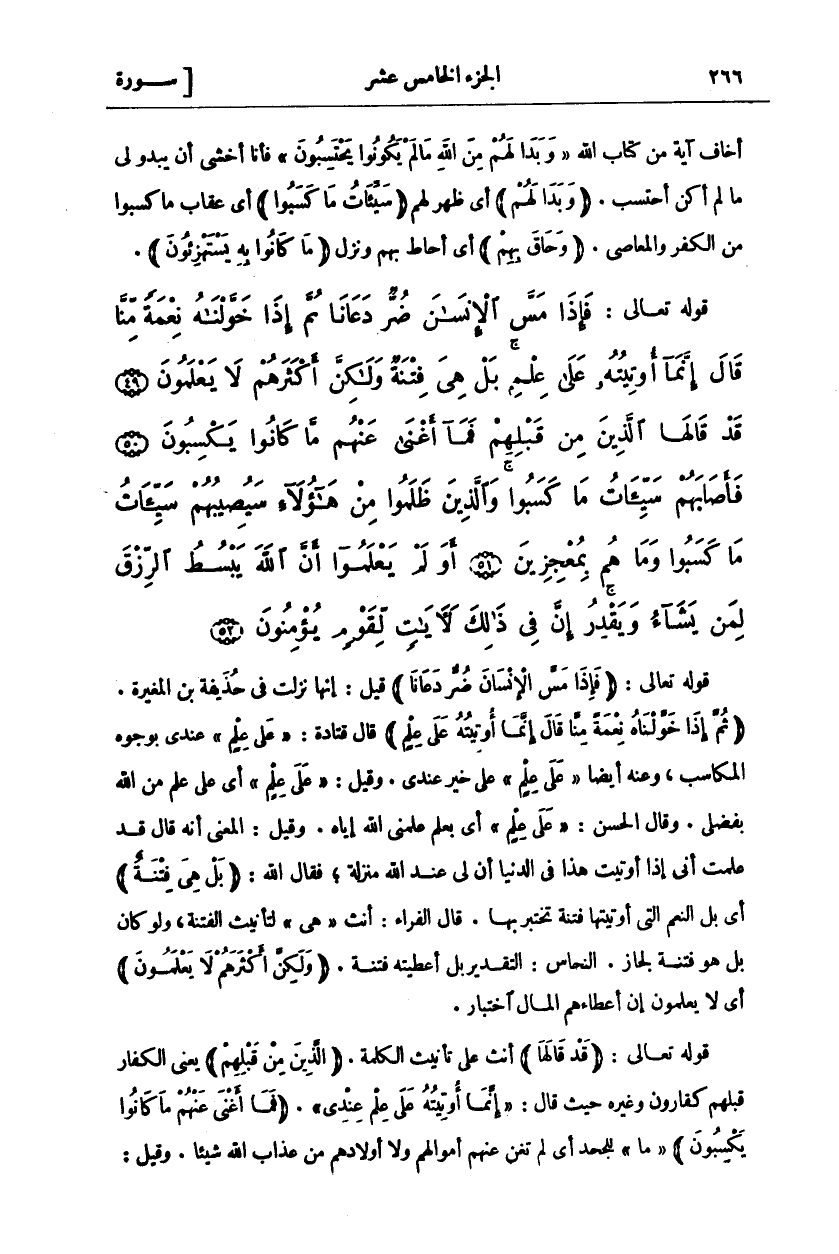 ٢٦٦ الجزء الخامس عشر [ ســورة
أخاف آية من كتاب الله « وَبَدَا لَهُمْ مِنَ اللَّهِ مَالَمْ يَكُونُوا يَحْتَسِبُونَ » فأنا أخشى أن يبدو لى
ما لم أكن أحتسب . ( وَبَدَا لَهُمْ ) أى ظهر لهم ( سَيِّئَاتُ مَا كَسَبُوا ) أى عقاب ما كسبوا
من الكفر والمعاصى . ( وَحَاقَ بِهِمْ ) أى أحاط بهم ونزل ( مَا كَانُوا بِهِ يَسْتَهْزِئُونَ ) .
قوله تعـالى : فَإِذَا مَسَّ ٱلْإِنسَـٰنَ ضُرٌّ دَعَانَا ثُمَّ إِذَا خَوَّلْنَـٰهُ نِعْمَةً مِّنَّا
قَالَ إِنَّمَآ أُوتِيتُهُۥ عَلَىٰ عِلْمٍۢ ۚ بَلْ هِىَ فِتْنَةٌ وَلَـٰكِنَّ أَكْثَرَهُمْ لَا يَعْلَمُونَ ﴿٤٩﴾
قَدْ قَالَهَا ٱلَّذِينَ مِن قَبْلِهِمْ فَمَآ أَغْنَىٰ عَنْهُم مَّا كَانُوا يَكْسِبُونَ ﴿٥٠﴾
فَأَصَابَهُمْ سَيِّـَٔاتُ مَا كَسَبُوا ۚ وَٱلَّذِينَ ظَلَمُوا مِنْ هَـٰٓؤُلَآءِ سَيُصِيبُهُمْ سَيِّـَٔاتُ
مَا كَسَبُوا وَمَا هُم بِمُعْجِزِينَ ﴿٥١﴾ أَوَ لَمْ يَعْلَمُوٓا أَنَّ ٱللَّهَ يَبْسُطُ ٱلرِّزْقَ
لِمَن يَشَآءُ وَيَقْدِرُ ۚ إِنَّ فِى ذَٰلِكَ لَآيَـٰتٍ لِّقَوْمٍ يُؤْمِنُونَ ﴿٥٢﴾
قوله تعالى : ( فَإِذَا مَسَّ الْإِنْسَانَ ضُرٌّ دَعَانَا ) قيل : إنها نزلت فى حُذَيفة بن المغيرة .
( ثُمَّ إِذَا خَوَّلْنَاهُ نِعْمَةً مِنَّا قَالَ إِنَّمَا أُوتِيتُهُ عَلَى عِلْمٍ ) قال قتادة : « عَلَى عِلْمٍ » عندى بوجوه
المكاسب ، وعنه أيضا « عَلَى عِلْمٍ » على خير عندى . وقيل : « عَلَى عِلْمٍ » أى على علم من الله
بفضلى . وقال الحسن : « عَلَى عِلْمٍ » أى بعلم علمنى الله إياه . وقيل : المعنى أنه قال قـد
علمت أنى إذا أوتيت هذا فى الدنيا أن لى عنـد الله منزلة ؛ فقال الله : ( بَلْ هِىَ فِتْنَـةٌ )
أى بل النعم التى أوتيتها فتنة تختبر بهـا . قال الفراء : أنث « هى » لتأنيث الفتنة ، ولو كان
بل هو فتنـة لجاز . النحاس : التقدير بل أعطيته فتنـة . ( وَلَكِنَّ أَكْثَرَهُمْ لَا يَعْلَمُـونَ )
أى لا يعلمون إن أعطاءهم المـال ٱختبار .
قوله تعـالى : ( قَدْ قَالَهَا ) أنث على تأنيث الكلمة . ( الَّذِينَ مِنْ قَبْلِهِمْ ) يعنى الكفار
قبلهم كقارون وغيره حيث قال : « إِنَّمَـا أُوتِيتُهُ عَلَى عِلْمٍ عِنْدِى » . ( فَمَـا أَغْنَى عَنْهُمْ مَا كَانُوا
يَكْسِبُونَ ) « ما » للجحد أى لم تغن عنهم أموالهم ولا أولادهم من عذاب الله شيئا . وقيل :